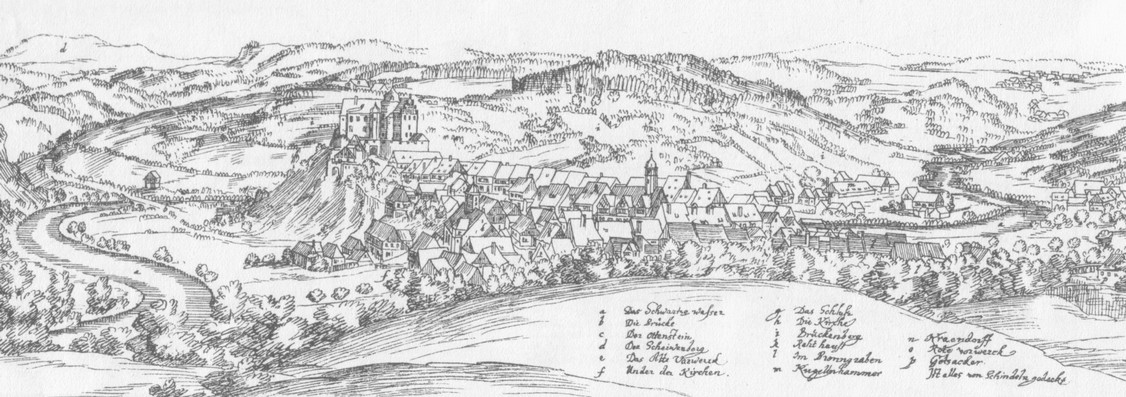 d
a Das Schwartze wasser
b Die Brücke
c Der Ottenstein
d Der Scheiwenberg
e Das Alte Vorwerck
f Under der Kirchen.
g Das Schloss
h Die Kirche
i Brückenberg
k Raht hauss
l Im Bronngraben
m Kugellnhammer
n Kraendorff
o Rote vorwerck
p Gotsacker
Ist alles von Schindeln gedeckt